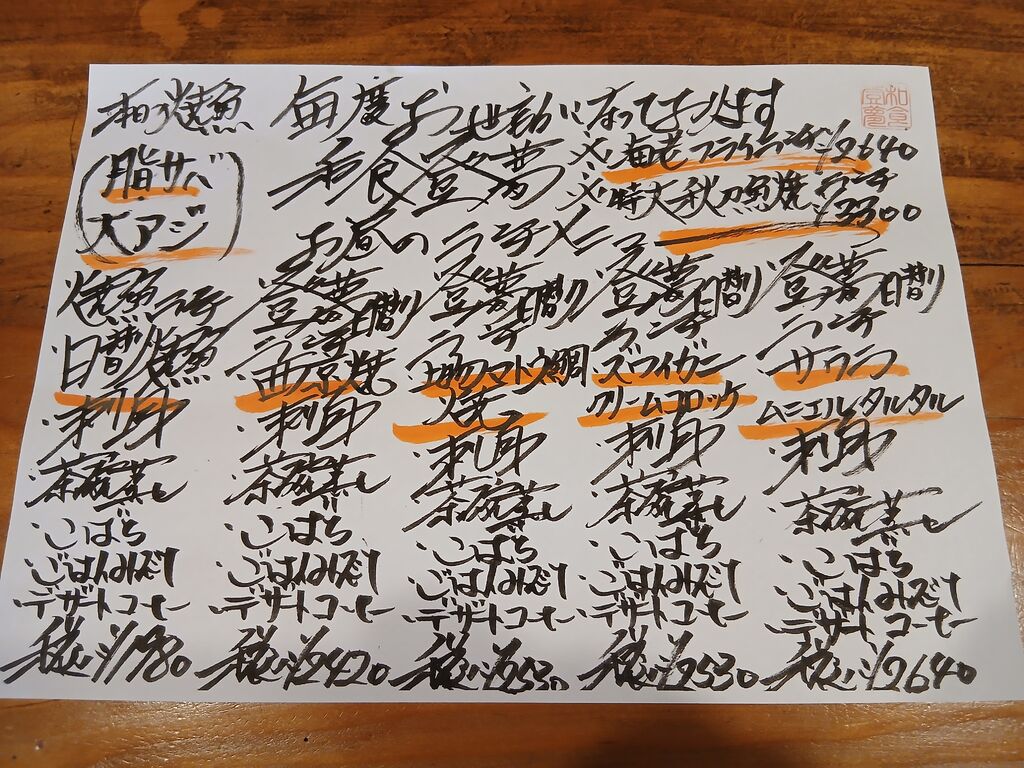 毎度お世話になっております
和食登夢
お昼のランチメニュー
※海老フライランチ ¥2640
※特大秋刀魚焼ランチ ¥3300
日替り焼魚
(脂サバ
大アジ)
焼魚ランチ
日替り焼魚
・刺身
・茶碗蒸し
・こばち
・ごはんみそ汁
・デザートコーヒー
税込¥1980
登夢日替り
ランチ
・西京焼
・刺身
・茶碗蒸し
・こばち
・ごはんみそ汁
・デザートコーヒー
税込¥2420
登夢日替り
ランチ
マトウ鯛
焼
・刺身
・茶碗蒸し
・こばち
・ごはんみそ汁
・デザートコーヒー
税込¥2530
登夢日替り
ランチ
・ズワイガニ
クリームコロッケ
・刺身
・茶碗蒸し
・こばち
・ごはんみそ汁
・デザートコーヒー
税込¥2530
登夢日替り
ランチ
・サワラ
ムニエルタルタル
・刺身
・茶碗蒸し
・こばち
・ごはんみそ汁
・デザートコーヒー
税込¥2640